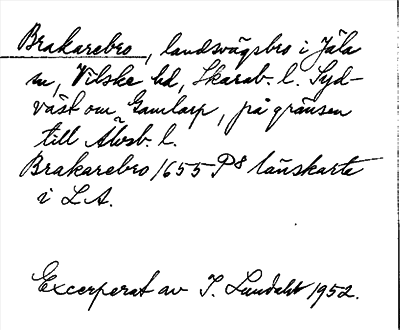 Brakarebro, landsvägsbro i Jäla
sn, Vilske hd, Skarab. l. Syd-
väst om Gamlarp, på gränsen
till Älvsb. l.
Brakarebro 1655 P8 länskarta
i L.A.
Excerperat av I. Lundahl 1952.